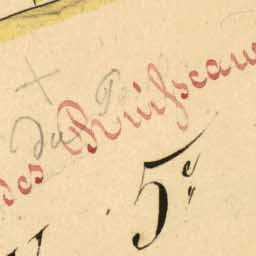 des Ruisseau
du P
5e